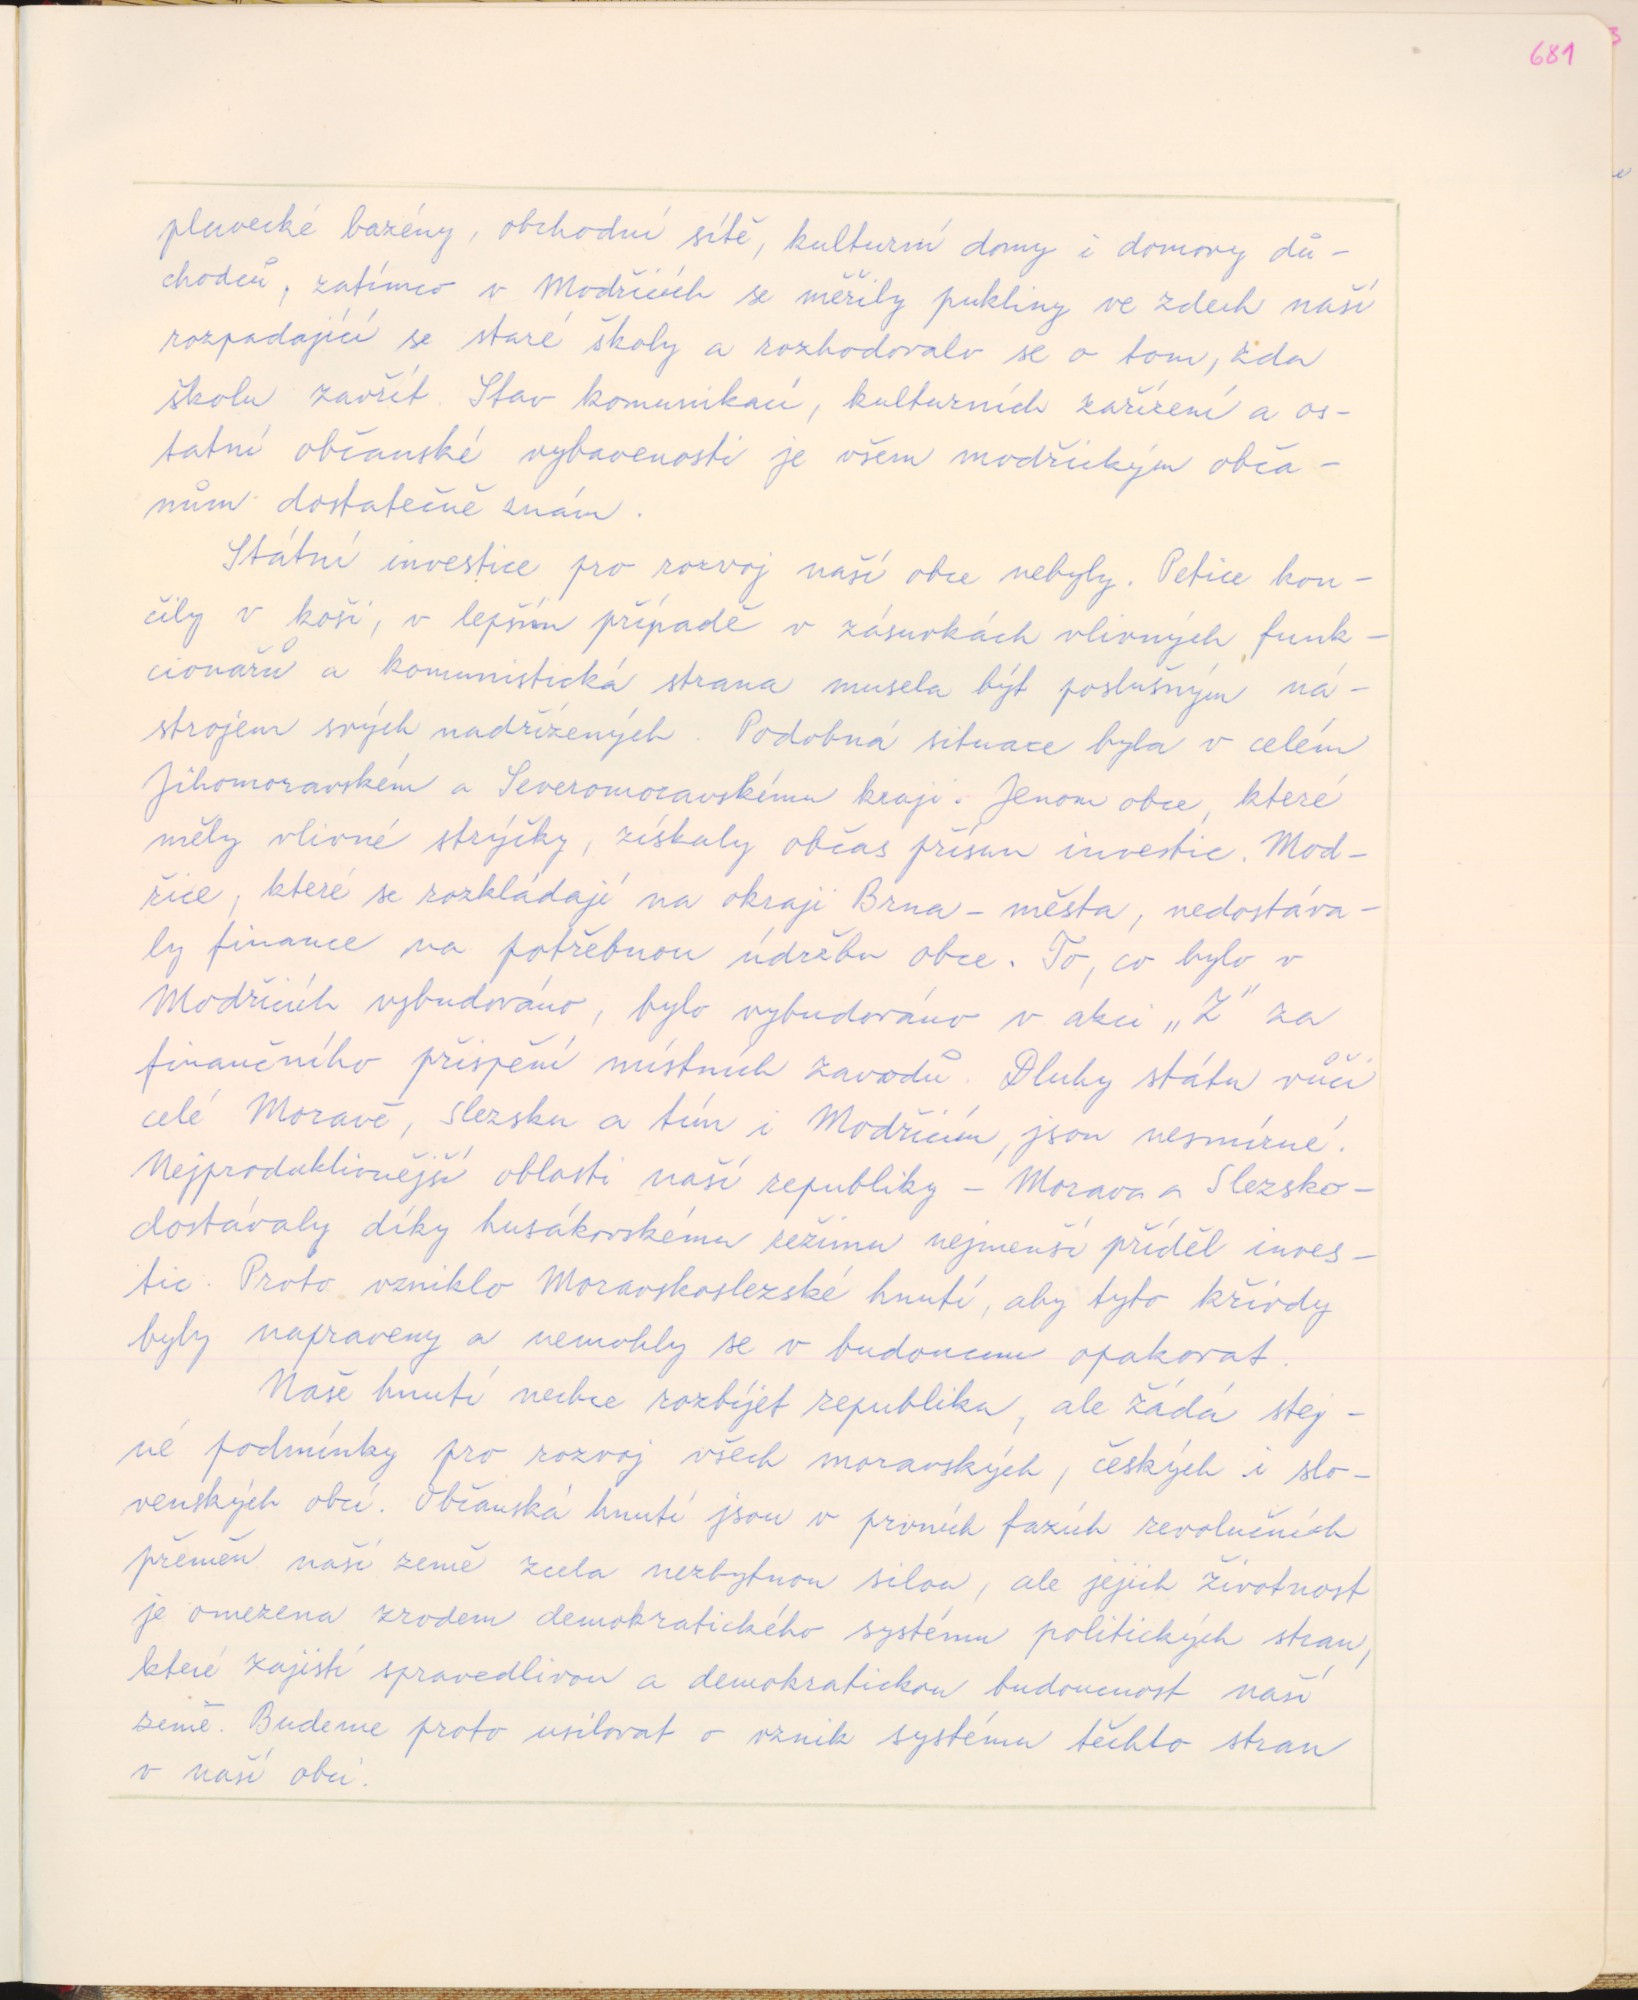 681
plavecké bazény, obchodní sítě, kulturní domy i domovy dů-
chodců, zatímco v Modřicích se měřily pukliny ve zdech naší
rozpadající se staré školy a rozhodovalo se o tom, zda
školu zavřít. Stav komunikací, kulturních zařízení a os-
tatní občanské vybavenosti je všem modřickým obča-
nům dostatečně znám.
Státní investice pro rozvoj naší obce nebyly. Petice kon-
čily v koši, v lepším případě v zásuvkách vlivných funk-
cionářů a komunistická strana musela být poslušným ná-
strojem svých nadřízených. Podobná situace byla v celém
Jihomoravském a Severomoravskému kraji. Jenom obce, které
měly vlivné strýčky, získaly občas přísun investic. Mod-
řice, které se rozkládají na okraji Brna-města, nedostáva-
ly finance na potřebnou údržbu obce. To, co bylo v
Modřicích vybudováno, bylo vybudováno v akci „Z" za
finančního přispění místních zavodů. Dluhy státu vůči
celé Moravě, Slezsku a tím i Modřicím, jsou nesmírné.
Nejproduktivnější oblasti naší republiky - Morava a Slezsko-
dostávaly díky husákovskému režimu nejmenší příděl inves-
tic. Proto vzniklo Moravskoslezské hnutí, aby tyto křivdy
byly napraveny a nemohly se v budoucnu opakovat.
Naše hnutí nechce rozbíjet republiku, ale žádá stej-
né podmínky pro rozvoj všech moravských, českých i slo-
venských obcí. Občanská hnutí jsou v prvních fazích revolučních
přeměn naší země zcela nezbytnou silou, ale jejich životnost
je omezena zrodem demokratického systému politických stran,
které zajistí spravedlivou a demokratickou budoucnost naší
země. Budeme proto usilovat o vznik systému těchto stran
v naší obci.